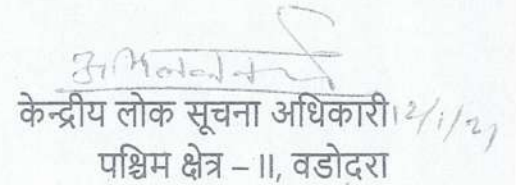 केन्द्रीय लोक सूचना अधिकारी 12/1/21
पश्चिम क्षेत्र – II, वडोदरा